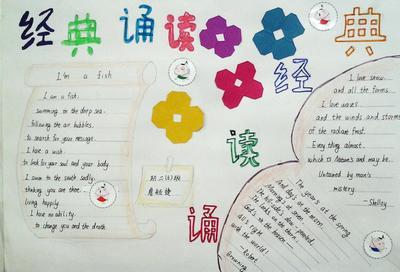 经典诵读
经典
读
诵
I'm a fish
I am a fish,
swimming in the deep sea.
following the air bubbles.
to search for your message.
I have a wish.
to look for your soul and your body
I swim to the south sadly.
thinking you are there.
living happily
I have no ability.
to change you and the death
I love snow.
and all the forms
I love waves
and the winds and storms
of the radiant frost.
Every thing almost
which is and may be.
Untained by man's
mistery.
—Shelley
The year's at the spring
And day's at the morn
Morning's at seven
The hillside's dew-pearled,
The larks on the
God's in his heaven,
All's right
with the world!
—Robert
Browning